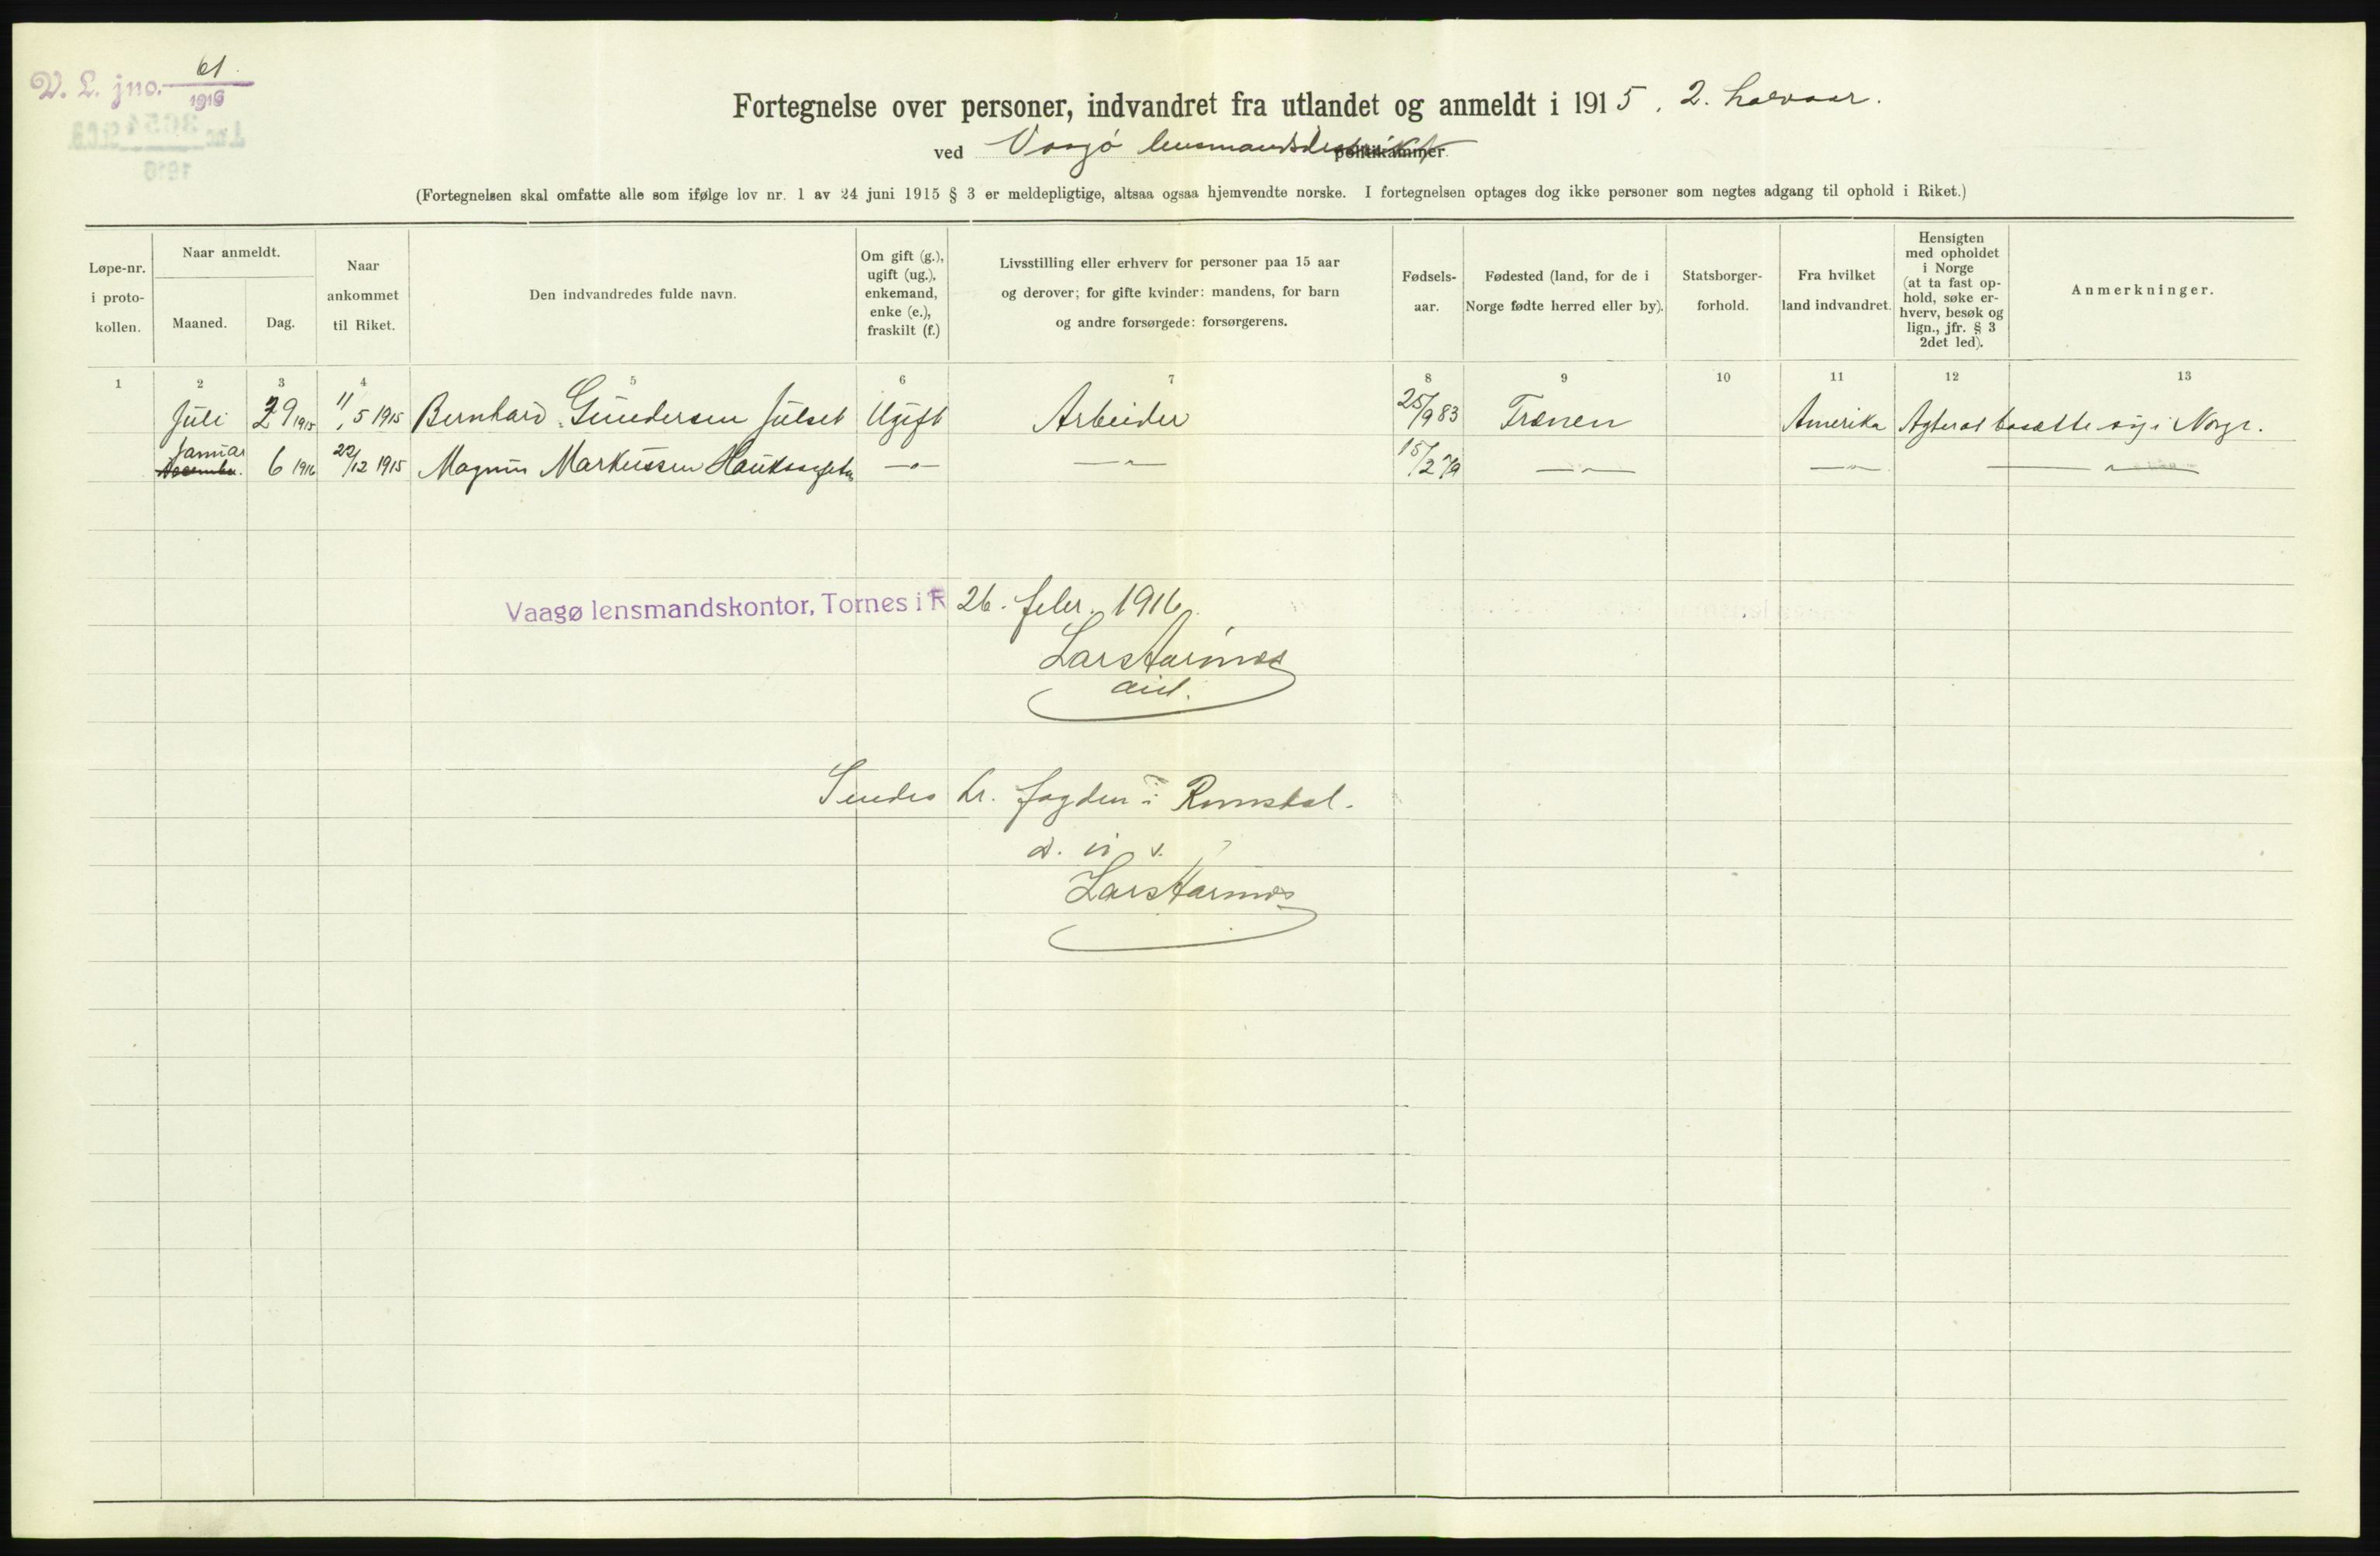 V. L. jno. 61.
1916
Fortegnelse over personer, indvandret fra utlandet og anmeldt i 1915. 2. halvaar.
ved Vaagø lensmandsdistrikt politikammer.
(Fortegnelsen skal omfatte alle som ifølge lov nr. 1 av 24 juni 1915 § 3 er meldepligtige, altsaa ogsaa hjemvendte norske. I fortegnelsen optages dog ikke personer som negtes adgang til ophold i Riket.)
Løpe-nr. i proto-kollen.
Naar anmeldt.
Maaned.
Dag.
Naar ankommet til Riket.
Den indvandredes fulde navn.
Om gift (g.), ugift (ug.), enkemand, enke (e.), fraskilt (f.)
Livsstilling eller erhverv for personer paa 15 aar og derover; for gifte kvinder: mandens, for barn og andre forsørgede: forsørgerens.
Fødsels-aar.
Fødested (land, for de i Norge fødte herred eller by).
Statsborger-forhold.
Fra hvilket land indvandret.
Hensigten med opholdet i Norge (at ta fast op-hold, søke er-hverv, besøk og lign., jfr. § 3 2det led).
Anmerkninger.
1 2 3 4 5 6 7 8 9 10 11 12 13
Juli 29 1915 11/5 1915 Bernhard Gundersen Julset Ugift Arbeider 25/9 83 Frænen Amerika Agter at bosætte sig i Norge.
Januar
December. 6 1916 22/12 1915 Magnus Markussen —"— —"— 15/2 79 —"— —"— —"—
Vaagø lensmandskontor, Tornes i R 26. febr. 1916.
Lars Aarnes
Sendes hr. fogden i Romsdal.
d. u. s.
Lars Aarnes